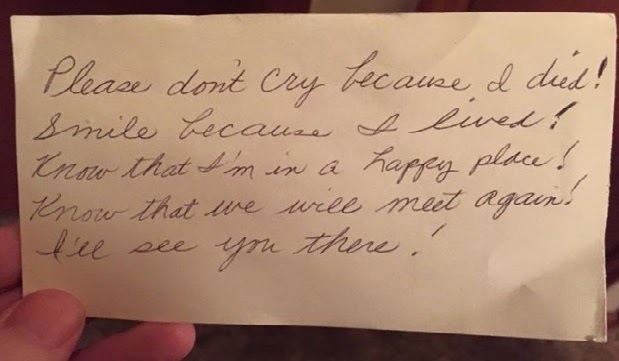 Please don't cry because I died!
Smile because I lived!
Know that I'm in a happy place!
Know that we will meet again!
I'll see you there!